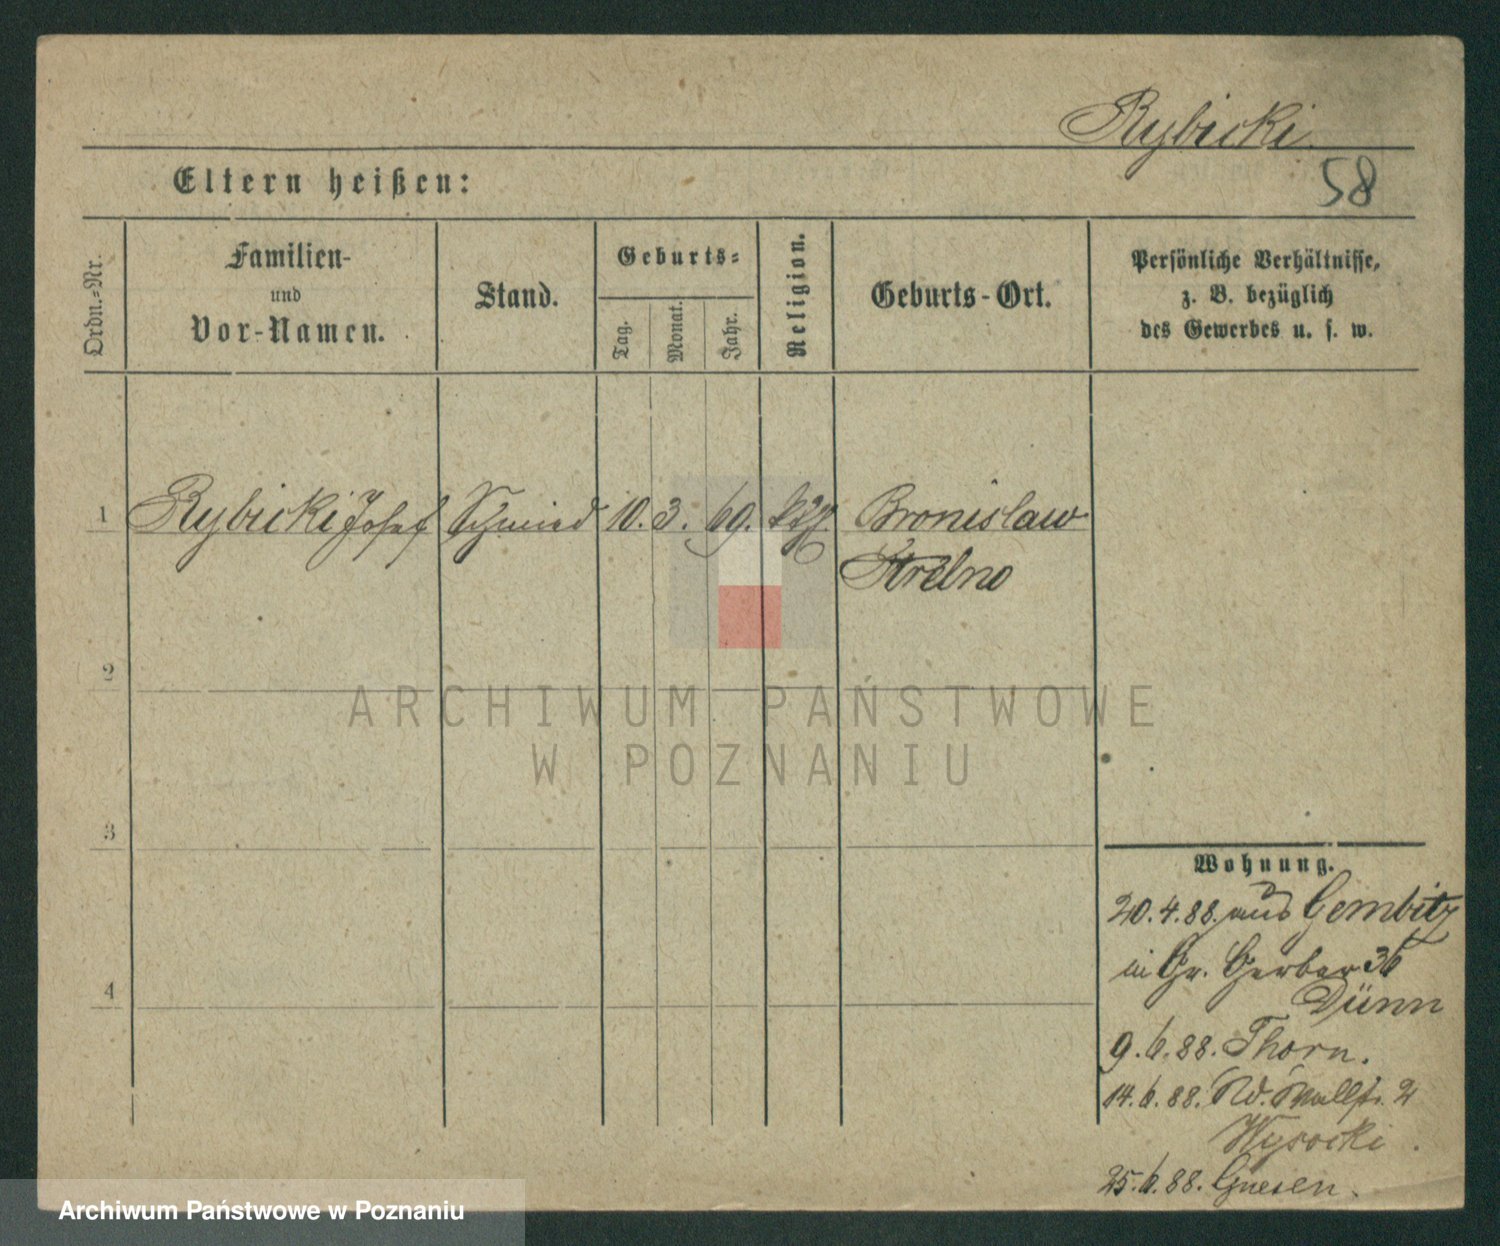 Rybicki
Eltern heißen:
58
Ordn.-Nr.
Familien-
und
Vor-Namen.
Stand.
Geburts-
Tag.
Monat.
Jahr.
Religion.
Geburts-Ort.
Persönliche Verhältnisse,
z. B. bezüglich
des Gewerbes u. s. w.
1 Rybicki Josef Schmied 10. 3. 69. kth. Bronislaw
Strelno
2
ARCHIWUM PAŃSTWOWE
W POZNANIU
3
Wohnung.
20.4.88. aus Gembitz
in Gr. Gerber 36
Dünn
4
9.6.88. Thorn.
14.6.88. Wallstr. 2
Wysocki
25.6.88. Gnesen.
Archiwum Państwowe w Poznaniu